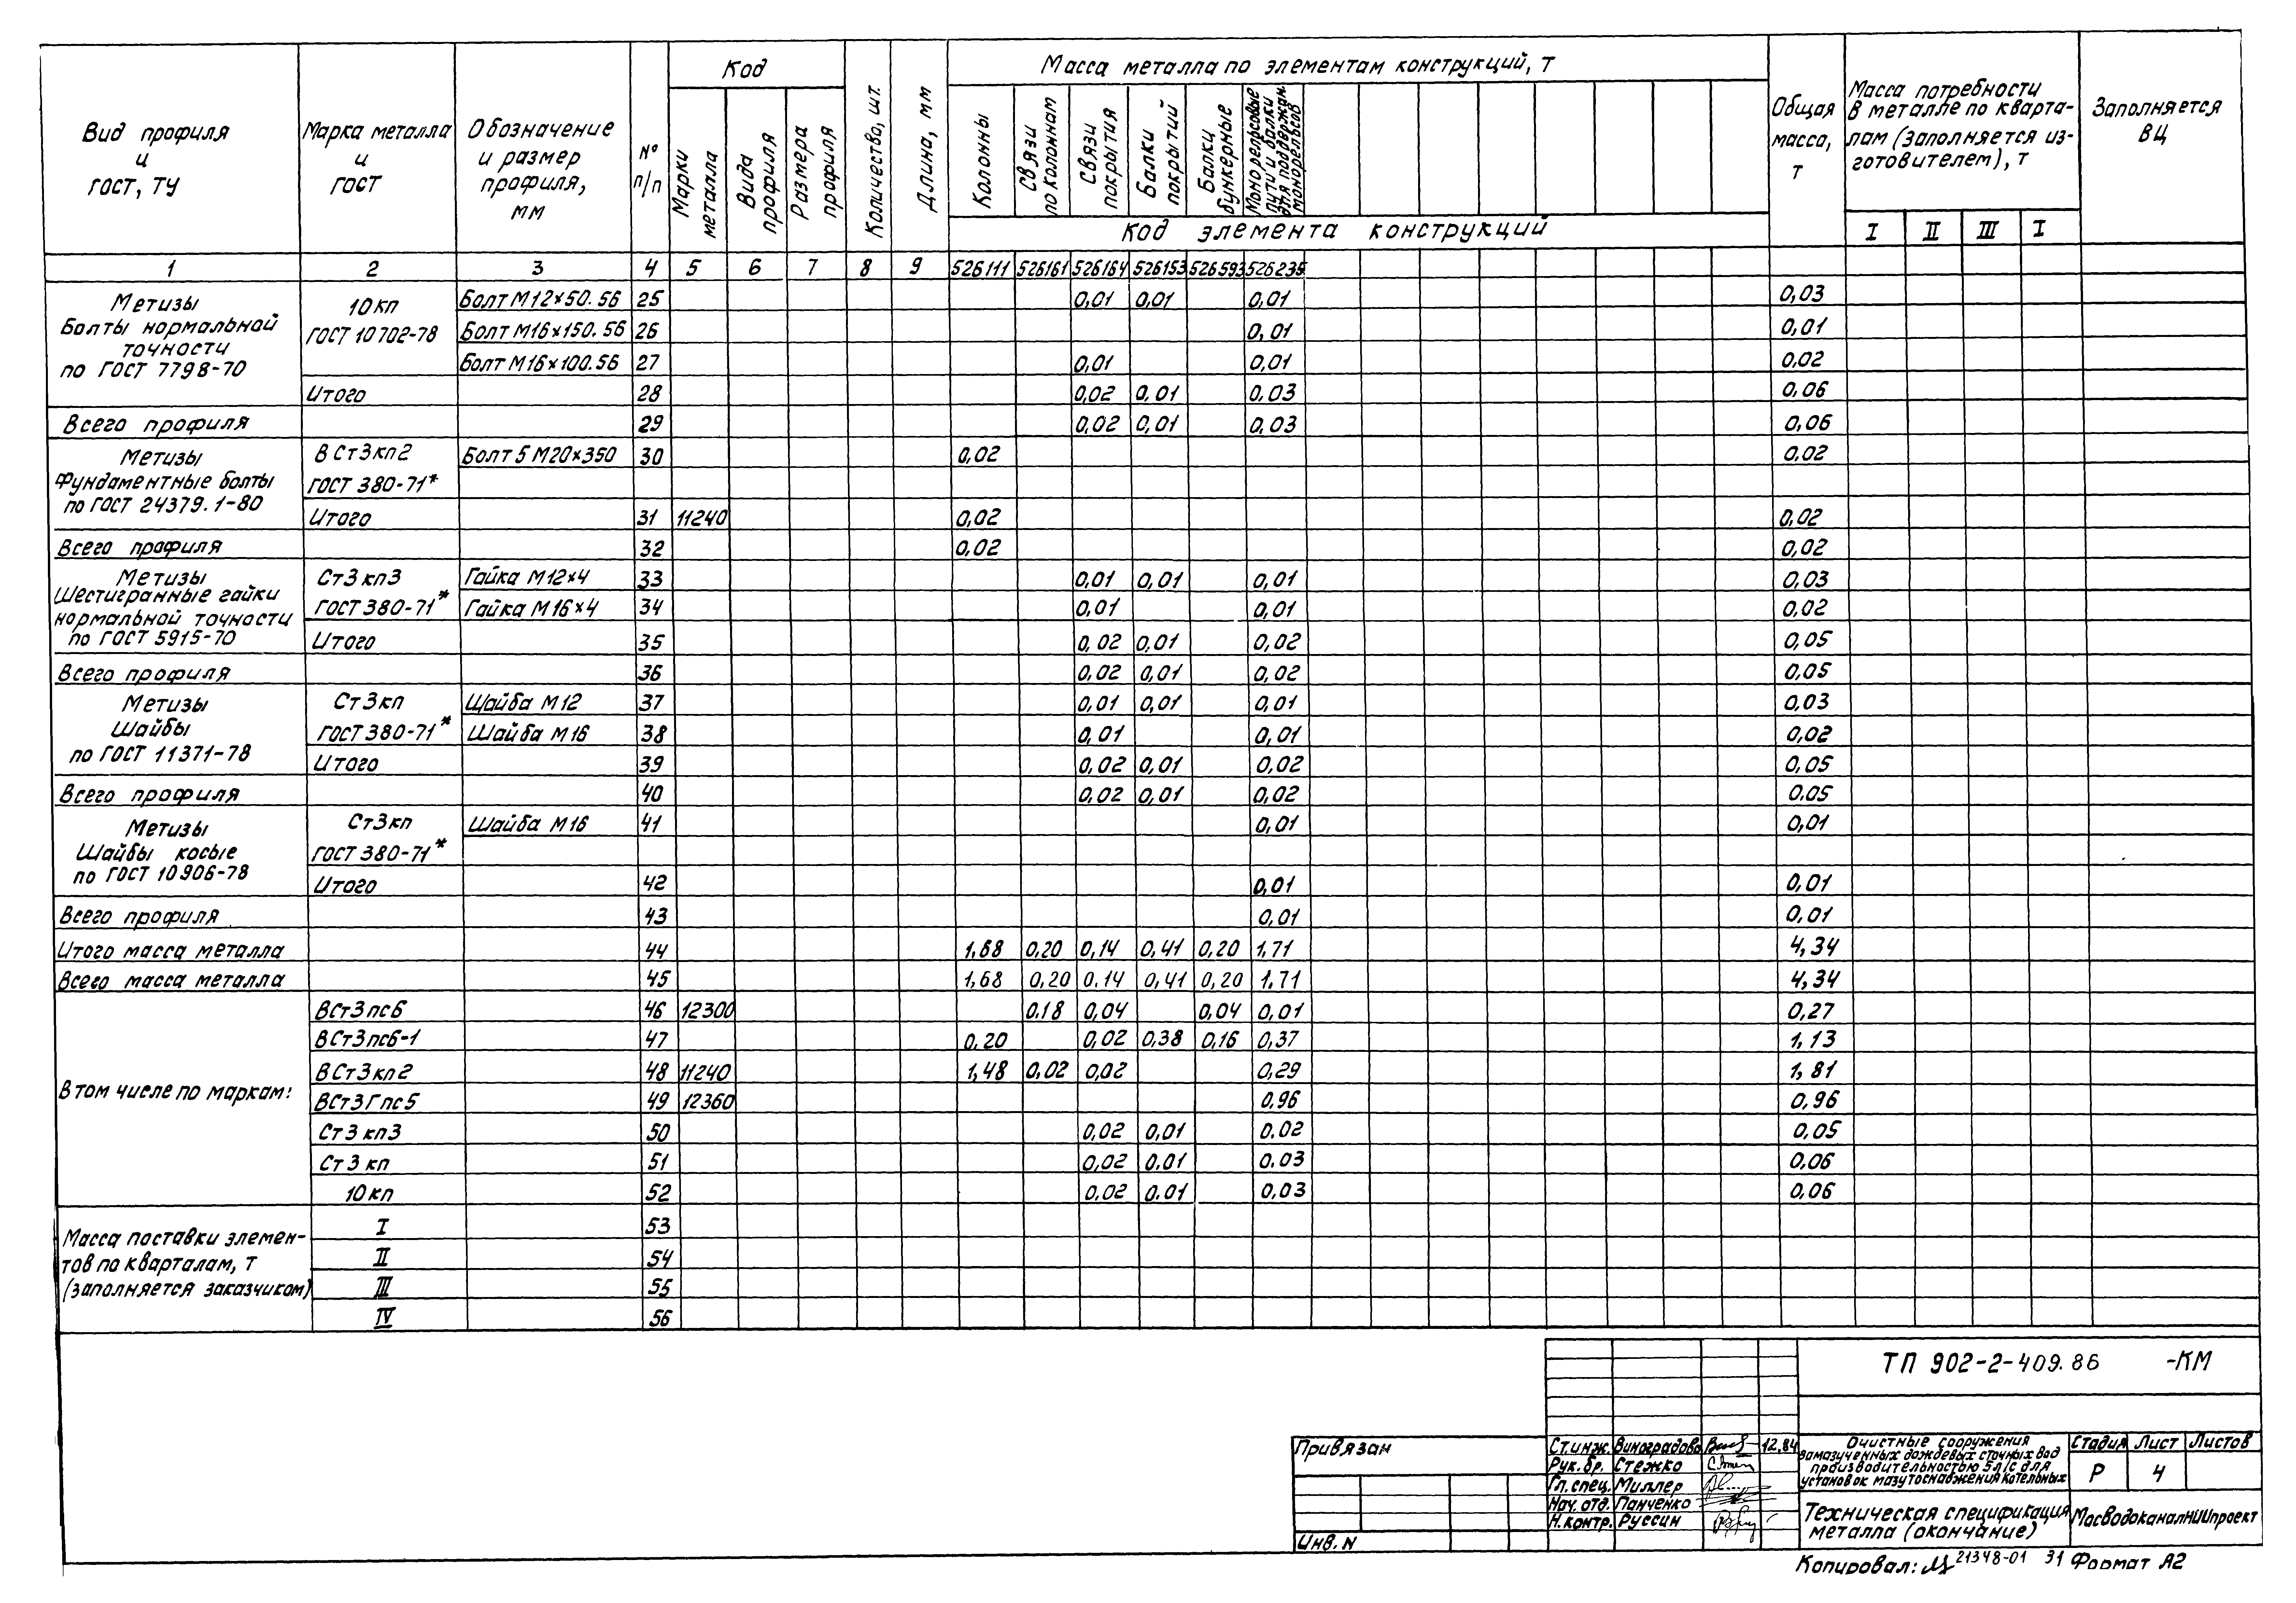 Вид профиля и ГОСТ, ТУ
Марка металла и ГОСТ
Обозначение и размер профиля, мм
№ п/п
Код
Марки металла
Вида профиля
Размера профиля
Количество, шт.
Длина, мм
Масса металла по элементам конструкций, т
Колонны
Связи по колоннам
Связи покрытия
Балки покрытий
Балки бункерные
Монорельсовые пути и балки для поддержан. монорельсов
Код элемента конструкций
Общая масса, т
Масса потребности в металле по кварталам (заполняется изготовителем), т
I II III I
Заполняется ВЦ
1 2 3 4 5 6 7 8 9 526111 526161 526164 526153 526593 526235
Метизы
Болты нормальной
точности
по ГОСТ 7798-70
10кп
ГОСТ 10702-78
Болт М12×50.56 25 0,01 0,01 0,01 0,03
Болт М16×150.56 26 0,01 0,01
Болт М16×100.56 27 0,01 0,01 0,02
Итого 28 0,02 0,01 0,03 0,06
Всего профиля 29 0,02 0,01 0,03 0,06
Метизы
Фундаментные болты
по ГОСТ 24379.1-80
ВСт3кп2
ГОСТ 380-71*
Болт 5 М20×350 30 0,02 0,02
Итого 31 11240 0,02 0,02
Всего профиля 32 0,02 0,02
Метизы
Шестигранные гайки
нормальной точности
по ГОСТ 5915-70
Ст3кп3
ГОСТ 380-71*
Гайка М12×4 33 0,01 0,01 0,01 0,03
Гайка М16×4 34 0,01 0,01 0,02
Итого 35 0,02 0,01 0,02 0,05
Всего профиля 36 0,02 0,01 0,02 0,05
Метизы
Шайбы
по ГОСТ 11371-78
Ст3кп
ГОСТ 380-71*
Шайба М12 37 0,01 0,01 0,01 0,03
Шайба М16 38 0,01 0,01 0,02
Итого 39 0,02 0,01 0,02 0,05
Всего профиля 40 0,02 0,01 0,02 0.05
Метизы
Шайбы косые
по ГОСТ 10906-78
Ст3кп
ГОСТ 380-71*
Шайба М16 41 0,01 0,01
Итого 42 0,01 0,01
Всего профиля 43 0,01 0,01
Итого масса металла 44 1,68 0,20 0,14 0,41 0,20 1,71 4,34
Всего масса металла 45 1,68 0,20 0.14 0,41 0,20 1,71 4,34
В том числе по маркам:
ВСт3пс6 46 12300 0.18 0,04 0,04 0,01 0,27
ВСт3пс6-1 47 0,20 0,02 0,38 0,16 0,37 1,13
ВСт3кп2 48 11240 1,48 0,02 0,02 0,29 1,81
ВСт3Гпс5 49 12360 0,96 0,96
Ст3кп3 50 0,02 0,01 0.02 0,05
Ст3кп 51 0,02 0,01 0.03 0,06
10кп 52 0,02 0.01 0,03 0,06
Масса поставки элемен-
тов по кварталам, т
(заполняется заказчиком)
I 53
II 54
III 55
IV 56
ТП 902-2-409.86 -КМ
Привязан
Инв. N
Ст.инж. Виноградова 12.84
Рук.бр. Стежко
Гл.спец. Миллер
Нач.отд. Панченко
Н.контр. Руссин
Очистные сооружения
замазученных дождевых сточных вод
производительностью 5л/с для
установок мазутоснабжения котельных
Стадия Лист Листов
Р 4
Техническая спецификация
металла (окончание)
МосводоканалНИИпроект
Копировал: 21348-01 31 Формат А2